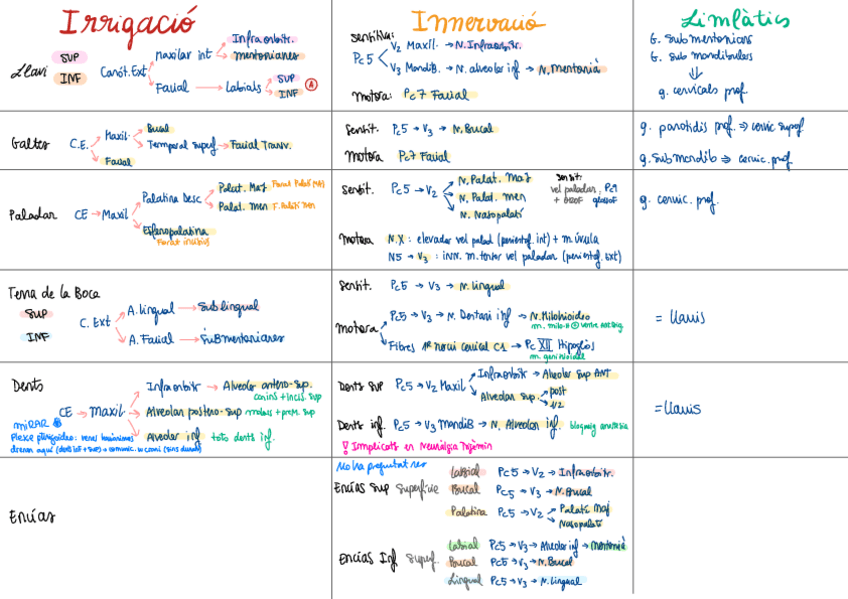 Irrigació
Innervació
Limfàtics
Llavi
SUP
INF
Caròt. Ext
Maxilar int
Infraorbitr.
mentonianes
Facial → Labials
SUP
INF
A
Sensitiva:
Pc 5
V2 Maxil. → N. Infraorbitr.
V3 Mandib. → N. alveolar inf → N. Mentonià
Motora: Pc7 Facial
G. submentonians
G. submandibulars
g. cervicals prof
Galtes
C.E.
Maxil.
Bucal
Temporal superf → Facial Transv.
Facial
Sentit. Pc5 → V3 → N. Bucal
Motora Pc7 Facial
g. parotidis prof. → cervic suprof
g. submandib → cervic. prof
Paladar
CE → Maxil
Palatina Desc
Palat. Maj Forat Palatí MAJ
Palat. Men F. Palatí Men
Esfenopalatina
Forat incisius
Sentit. Pc5 → V2
N. Palat. Maj
N. Palat. men
N. Nasopalatí
Sensit:
vel paladar: Pc9
glossof
Motora N.X: elevador vel palad (peristof. int) + m. úvula
N5 → V3: inn. m. tensor vel paladar (peristof. ext)
g. cervic. prof.
Terra de la Boca
SUP
INF
C. Ext
A. lingual → Sublingual
A. Facial → Submentonianes
Sentit. Pc5 → V3 → N. lingual
Motora
Pc5 → V3 → N. Dentari inf → N. Milohioideo
Fibres 1r nervi cervical C1 → Pc XII Hipoglòs
m. genihioidell
= Llavis
Dents
CE → Maxil
Infraorbit → Alveolar antero-sup.
canins + incis. sup
Alveolar postero-sup molars + prem. sup
Alveolar inf tots dents inf.
MIRAR
Dents sup Pc5 → V2 Maxil
Infraorbitr → Alveolar sup ANT
Alveolar sup
post
1/2
Dents inf. Pc5 → V3 Mandib → N. Alveolar inf. bloqueig anestesia
! Implicats en Neuràlgia Trigèmin
= Llavis
Encías
No ha preguntat res
Encías Sup Superfície
Labial Pc5 → V2 → Infraorbitr.
Bucal Pc5 → V3 → N. Bucal
Palatina Pc5 → V2
Palatí Maj
Nasopalatí
Encías Inf Superf.
Labial Pc5 → V3 → Alveolar inf → mentonià
Bucal Pc5 → V3 → N. Bucal
Lingual Pc5 → V3 → N. lingual